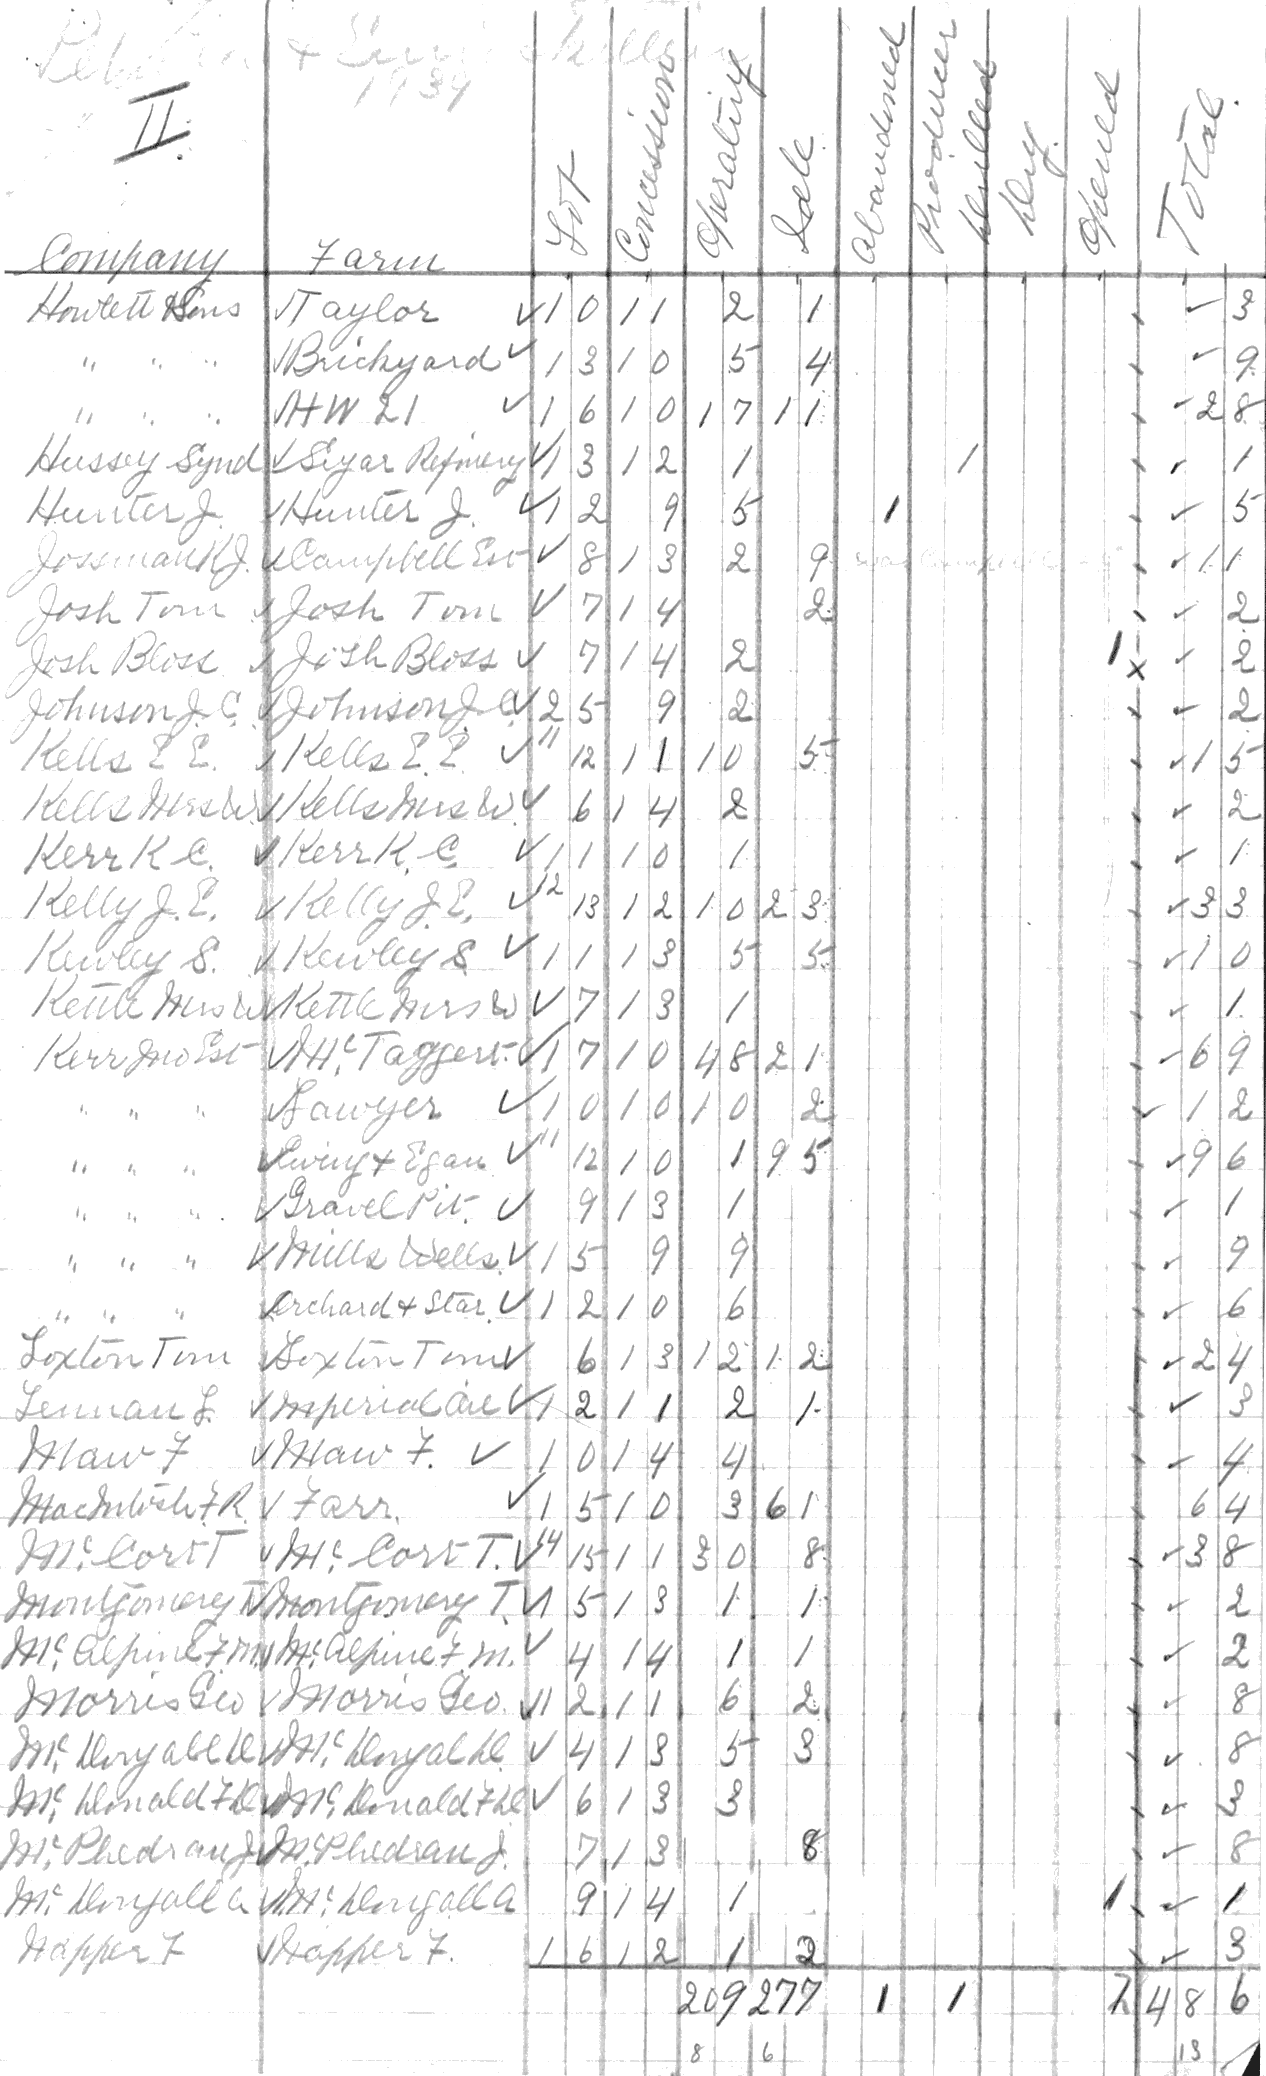 Petrolia & Enniskillen
1934
II.
Company Farm Lot Concession Operating Idle Abandoned Producer Drilled Dry Opened Total
Howlett Sons ✓Taylor ✓ 10 11 2 1 ✓ 3
" " " ✓Brickyard ✓ 13 10 5 4 ✓ 9
" " " ✓HW 21 ✓ 16 10 17 11 ✓ 28
Hussey Synd ✓Sugar Refinery ✓ 13 12 1 1 ✓ 1
Hunter J. ✓Hunter J. ✓ 12 9 5 1 ✓ 5
Jossman R.J. ✓Campbell Est ✓ 8 13 2 9 ✓ 11
Josh Tom ✓Josh Tom ✓ 7 14 2 ✓ 2
Josh Bloss ✓Josh Bloss ✓ 7 14 2 1 x ✓ 2
Johnson J. C. ✓Johnson J. C. ✓ 25 9 2 ✓ 2
Kells E E. ✓Kells E. E. ✓ 11 12 11 10 5 ✓ 15
Kells Mrs W. ✓Kells Mrs W. ✓ 6 14 2 ✓ 2
Kerr K C. ✓Kerr K. C. ✓ 11 10 1 ✓ 1
Kelly J. E. ✓Kelly J. E. ✓ 12 13 12 10 23 ✓ 33
Kewley S. ✓Kewley S. ✓ 11 13 5 5 ✓ 10
Kettle Mrs W ✓Kettle Mrs W ✓ 7 13 1 ✓ 1
Kerr Jno Est ✓Mc. Taggert. ✓ 17 10 48 21 ✓ 69
" " " ✓Sawyer ✓ 10 10 10 2 ✓ 12
" " " ✓Ewing & Egan ✓ 11 12 10 1 95 ✓ 96
" " " ✓Gravel Pit. ✓ 9 13 1 ✓ 1
" " " ✓Mills Wells. ✓ 15 9 9 ✓ 9
" " " ✓Orchard & Star. ✓ 12 10 6 ✓ 6
Loxton Tom ✓Loxton Tom ✓ 6 13 12 12 ✓ 24
Lennan L. ✓Imperial Oil ✓ 12 11 2 1 ✓ 3
Maw F ✓Maw F. ✓ 10 14 4 ✓ 4
MacIntosh F.R. ✓Farr. ✓ 15 10 3 61 64
Mc. Cort T ✓Mc. Cort T. ✓ 14 15 11 30 8 ✓ 38
Montgomery T. ✓Montgomery T. ✓ 15 13 1 1 ✓ 2
Mc. Alpine F. M. ✓Mc. Alpine F. M. ✓ 4 14 1 1 ✓ 2
Morris Geo ✓Morris Geo. ✓ 12 11 6 2 ✓ 8
Mc. Dougall D. ✓Mc. Dougal D. ✓ 4 13 5 3 ✓ 8
Mc. Donald F D ✓Mc. Donald F D ✓ 6 13 3 ✓ 3
Mc. Phedran J. ✓Mc. Phedran J. 7 13 8 ✓ 8
Mc. Dougall A ✓Mc. Dougall A 9 14 1 1 ✓ 1
Happer F ✓Happer F. 16 12 1 2 ✓ 3
209 277 1 1 2 486
8 6 13